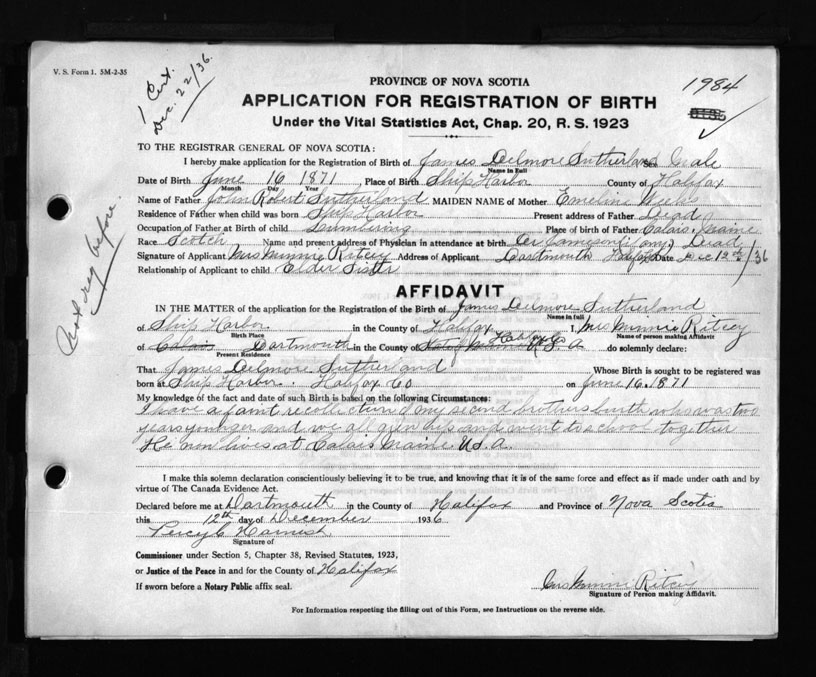 V. S. Form 1. 5M-2-35
1 Cert.
Dec. 22/36.
1984
PROVINCE OF NOVA SCOTIA
APPLICATION FOR REGISTRATION OF BIRTH
Under the Vital Statistics Act, Chap. 20, R. S. 1923
TO THE REGISTRAR GENERAL OF NOVA SCOTIA:
I hereby make application for the Registration of Birth of James Delmore Sutherland Sex Male
Name in Full
Date of Birth June 16 1871 Place of Birth Ship Harbor County of Halifax
Month Day Year
Name of Father John Robert Sutherland MAIDEN NAME of Mother Emeline
Residence of Father when child was born Ship Harbor Present address of Father Dead
Occupation of Father at Birth of child Lumbering Place of birth of Father Calais, Maine
Race Scotch Name and present address of Physician in attendance at birth Dr Jameson (any) Dead
Signature of Applicant Mrs Minnie Ritcey Address of Applicant Dartmouth Halifax Date Dec 12th/36
Relationship of Applicant to child Elder Sister
Not reg before.
AFFIDAVIT
IN THE MATTER of the application for Registration of the Birth of James Delmore Sutherland
Name in full
of Ship Harbor in the County of Halifax I, Mrs Minnie Ritcey
Birth Place Name of person making Affidavit
of Calais Dartmouth in the County of Halifax Co U.S.A do solemnly declare:
Present Residence
That James Delmore Sutherland Whose Birth is sought to be registered was
born at Ship Harbor. Halifax Co on June 16, 1871
My knowledge of the fact and date of such Birth is based on the following Circumstances:
I have a faint recollection of my second brothers birth who was two
years younger and we all grew up and went to school together
He now lives at Calais Maine U.S.A.
I make this solemn declaration conscientiously believing it to be true, and knowing that it is of the same force and effect as if made under oath and by
virtue of The Canada Evidence Act.
Declared before me at Dartmouth in the County of Halifax and Province of Nova Scotia
this 12th day of December 1936
Percy C Harnish
Signature of
Commissioner under Section 5, Chapter 38, Revised Statutes, 1923,
or Justice of the Peace in and for the County of Halifax
If sworn before a Notary Public affix seal.
Mrs Minnie Ritcey
Signature of Person making Affidavit.
For Information respecting the filling out of this Form, see Instructions on the reverse side.